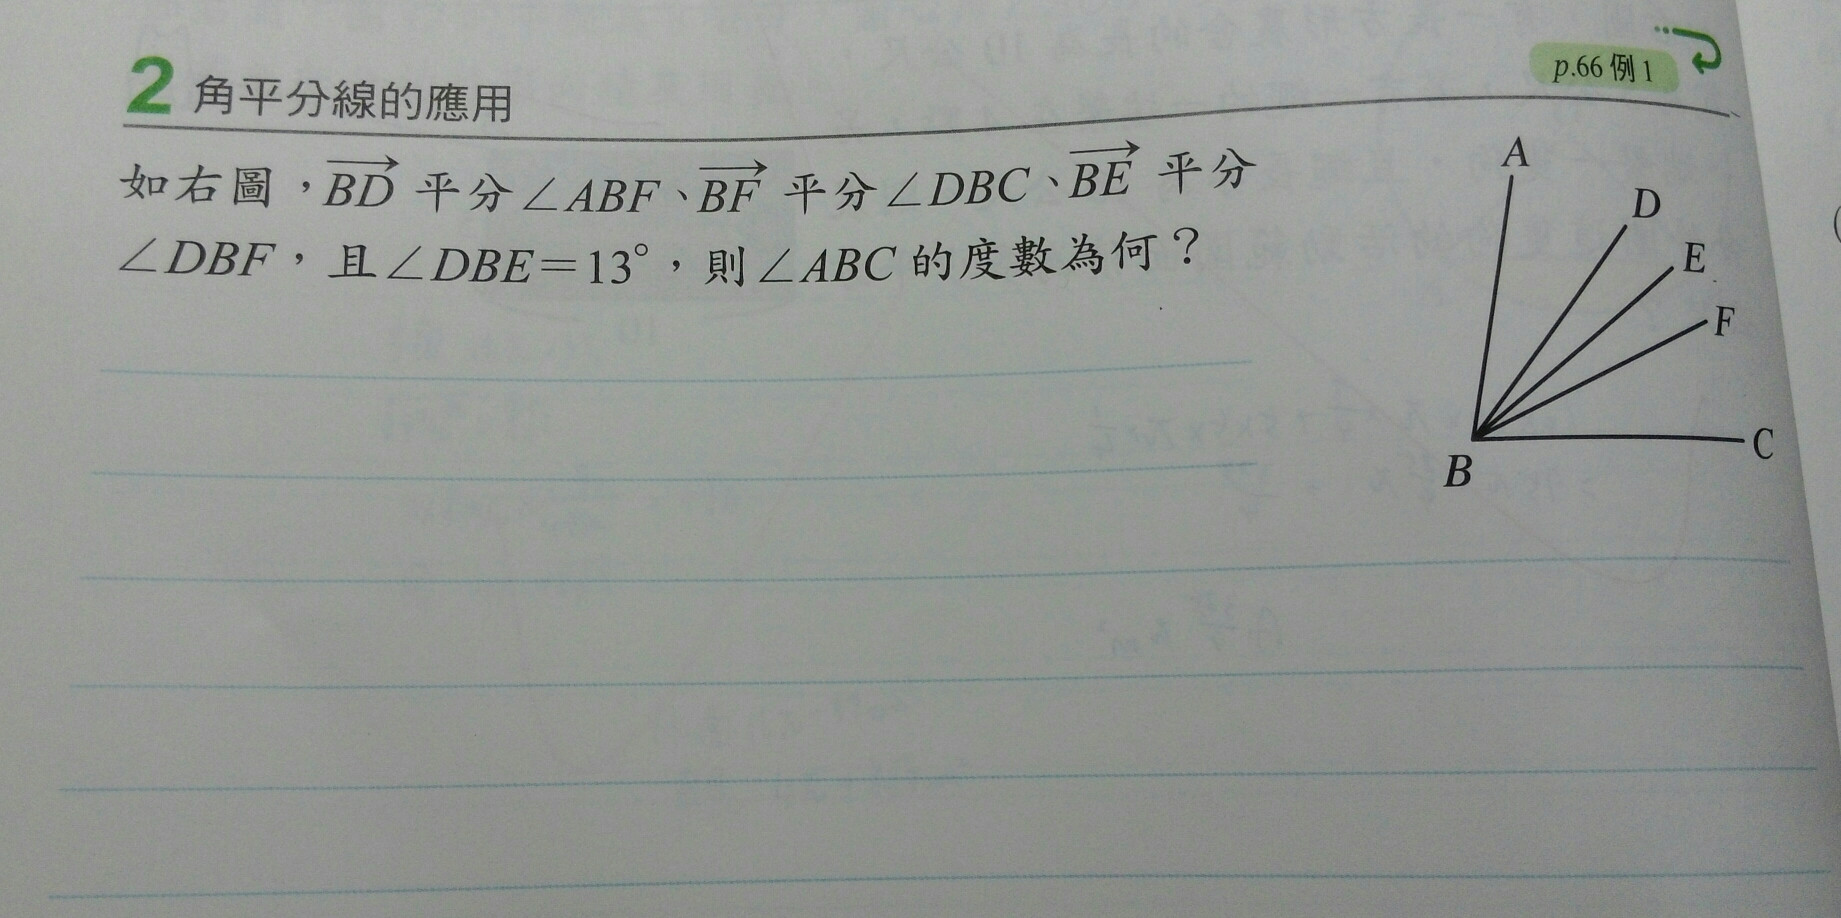 p.66 例1
2 角平分線的應用
如右圖，BD 平分∠ABF、BF 平分∠DBC、BE 平分
∠DBF，且∠DBE＝13°，則∠ABC 的度數為何？
A
D
E
F
C
B